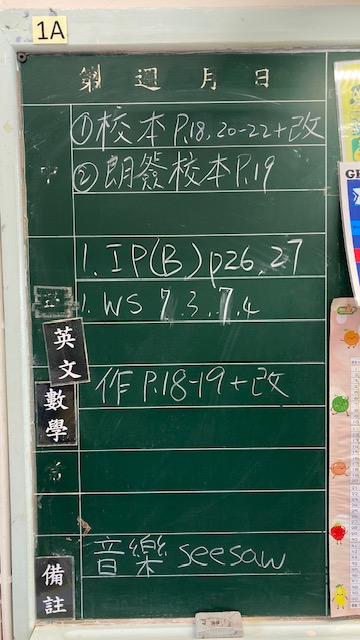 1A
第 週 月 日
中
①校本P.18,20-22+改
②朗簽校本P.19
1. IP(B) p26, 27
1. WS 7.3, 7.4
英文
作 P.18-19+改
數學
音樂 seesaw
備註